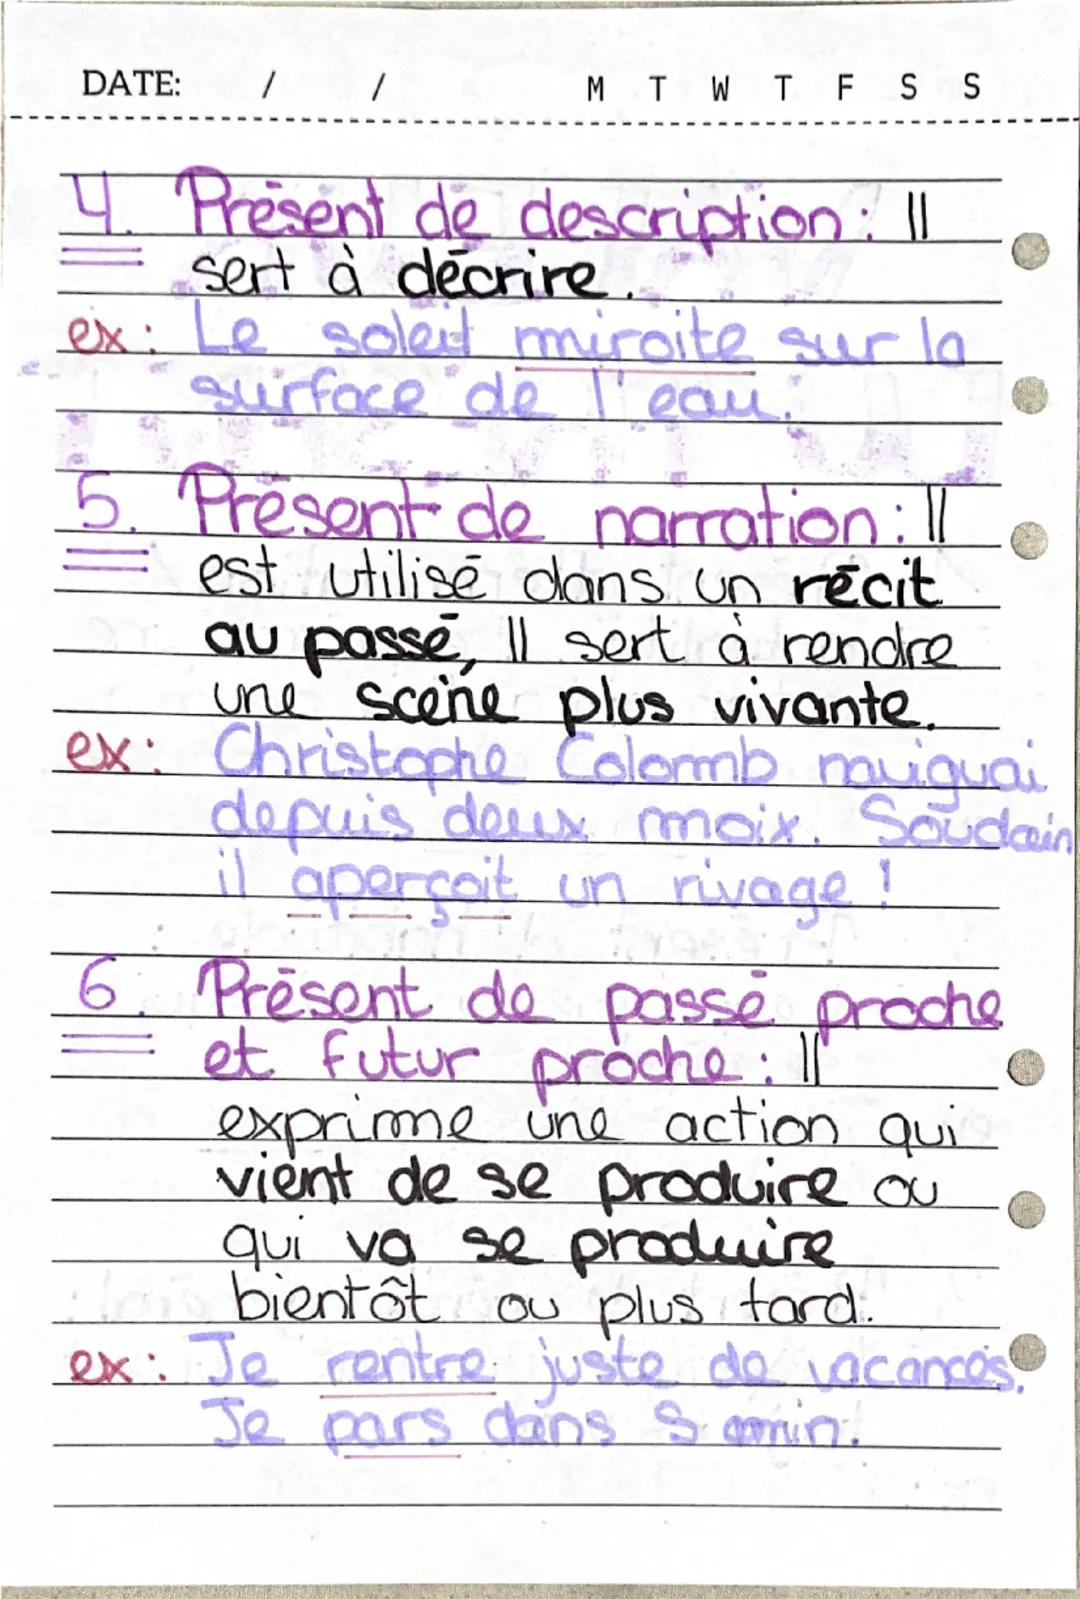 DATE: / / M T W T F S S
4. Présent de description : Il
sert à décrire.
ex : Le soleil miroite sur la
surface de l'eau.
5. Présent de narration : Il
est utilisé dans un récit
au passé, Il sert à rendre
une scène plus vivante.
ex : Christophe Colomb naviguai
depuis deux moix. Soudain
il aperçoit un rivage !
6. Présent de passé proche
et futur proche : Il
exprime une action qui
vient de se produire ou
qui va se produire
bientôt ou plus tard.
ex : Je rentre juste de vacances.
Je pars dans 5 min.